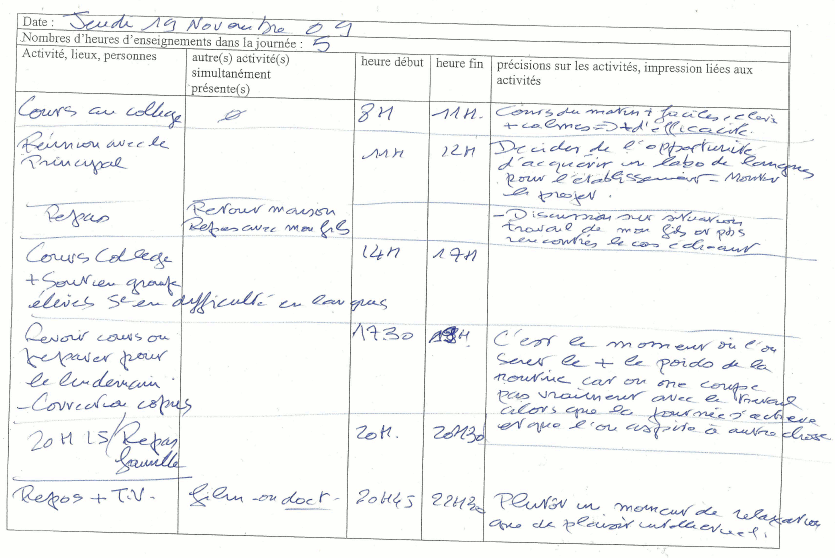 Date : Jeudi 19 Novembre 09
Nombres d'heures d'enseignements dans la journée : 5
Activité, lieux, personnes
autre(s) activité(s)
simultanément
présente(s)
heure début
heure fin
précisions sur les activités, impression liées aux
activités
Cours au collège
ø
8H
11H.
Cours du matin + faciles, clairs
+ calmes => + d'efficacité.
Réunion avec le
Principal
11H
12H
Décider de l'opportunité
d'acquérir un labo de langues
pour l'établissement - Monter
le projet.
Repas
Retour maison
Repas avec mon fils
- Discussion sur situation
travail de mon fils et pbs
rencontrés le cas échéant
Cours Collège
+ Soutien groupe
élèves 5e en difficulté en langues
14H
17H
Revoir cours ou
préparer pour
le lendemain.
- Correction copies
1730
H.
C'est le moment où l'on
sent le + le poids de la
routine car on ne coupe
pas vraiment avec le travail
alors que la journée s'achève
et que l'on aspire à autre chose
20H15/Repas
famille
20H.
20H30
Repos + T.V-
film - ou doct -
20H45
22H30
Plutôt un moment de relaxation
que de plaisir intellectuel.